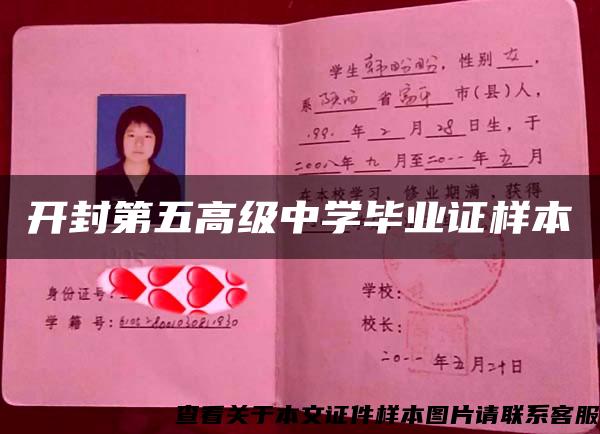 学生韩盼盼，性别女，
系陕西省富平市(县)人，
199 年2月28日生，于
二〇〇八年九月至二〇一一年五月
在本校学习，修业期满，获得
开封第五高级中学毕业证样本
身份证号：
学校：
学籍号：
校长：
二〇一一年五月二十日
查看关于本文证件样本图片请联系客服